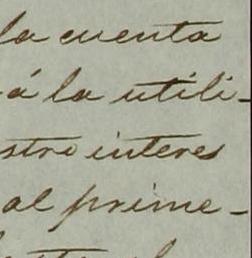 la cuenta
á la utili-
stro interes
al prime-